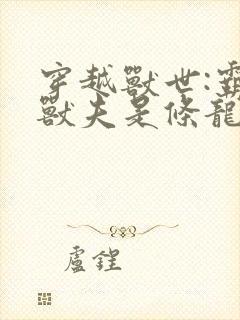 穿越獸世:霸
獸夫是條龍
盧鋥